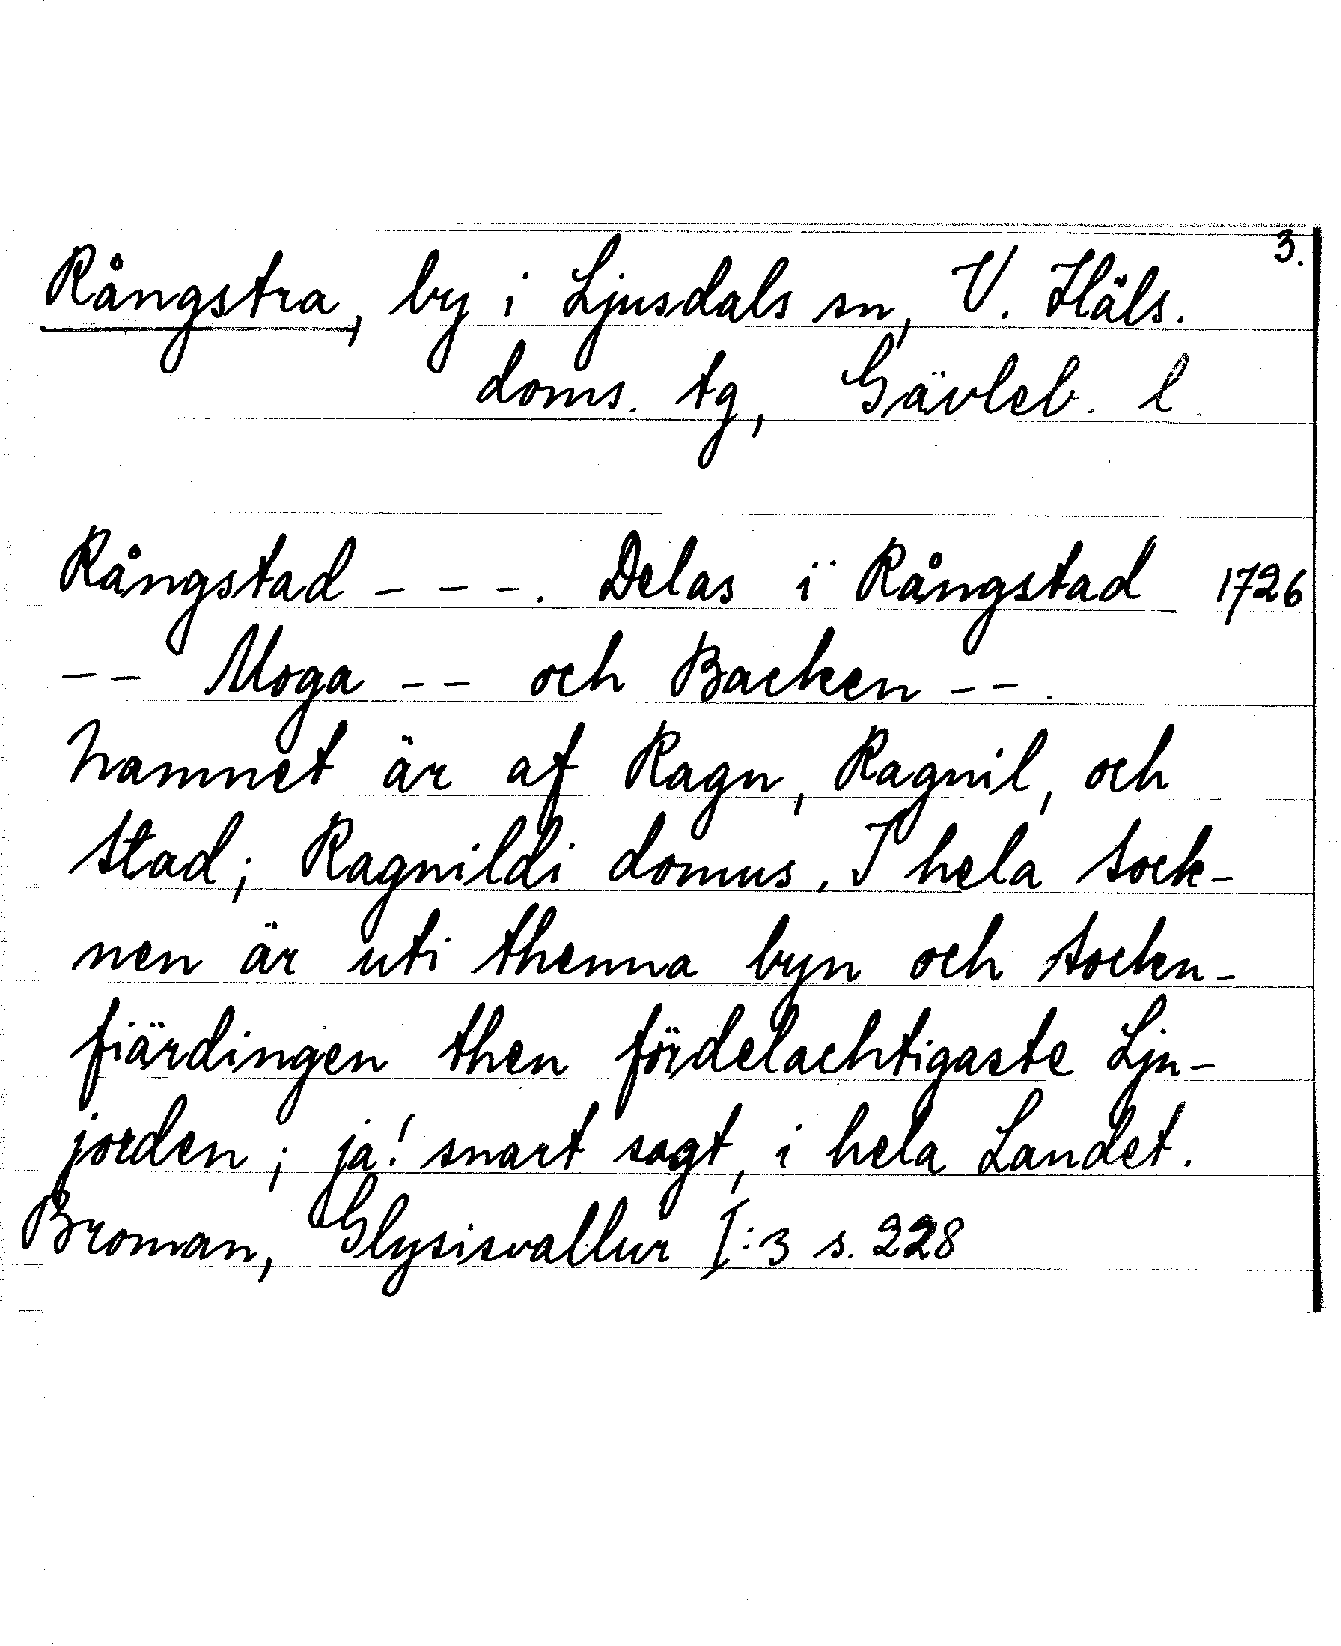 3.
Rångstra, by i Ljusdals sn, V. Häls.
doms. tg, Gävleb. l.
Rångstad - - -. Delas i Rångstad 1726
- - Moga - - och Backen - - .
Namnet är af Ragn, Ragnil, och
stad; Ragnildi domus. I hela sock-
nen är uti thenna byn och sockn-
fiärdingen then fördelachtigaste Lju-
jorden; ja! snart sagt, i hela Landet.
Broman, Glysisvallur I:3 s. 228